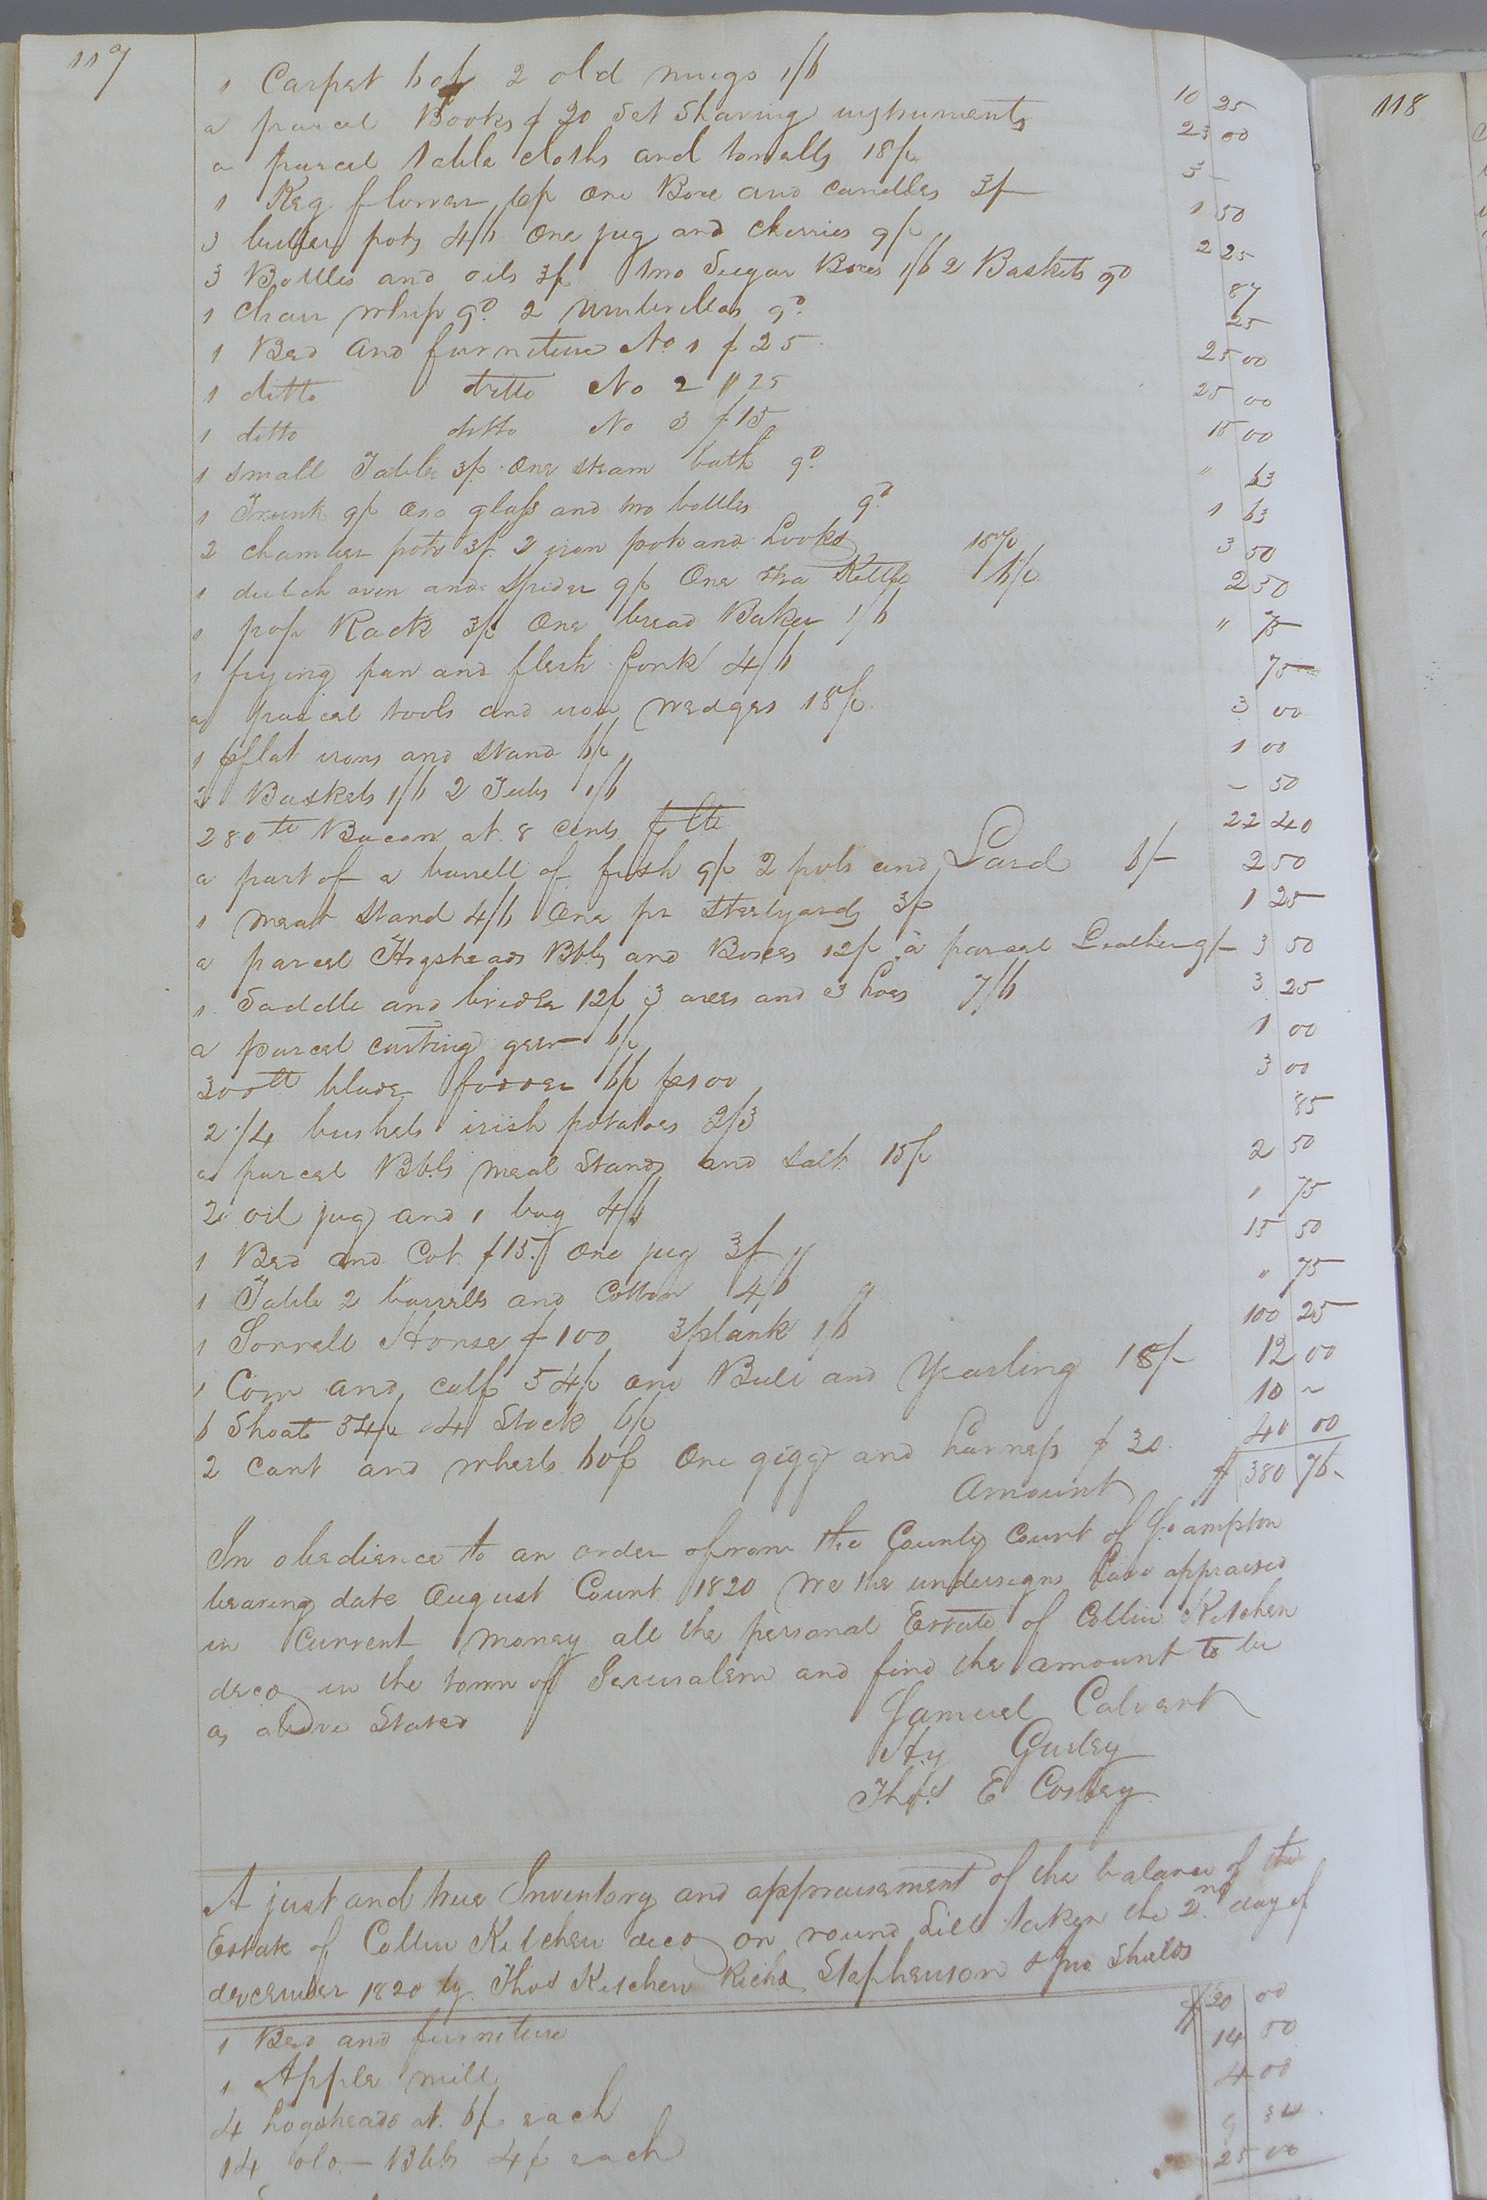 117
1 Carpet 60/ 2 old mugs 1/6 10 25
a parcel Books $20 Set Shaving instruments 23 00
a parcel table cloths and towells 18/ 3 -
1 Keg flower 6/ One Box and candles 3/ 1 50
3 butter pots 4/6 One jug and cherries 9/ 2 25
3 Bottles and oils 3/ two Sugar Boxes 1/6 2 Baskets 9d 87
1 chair whip 9d 2 umbrellas 9d 25
1 Bed and furniture No 1 $25 25 00
1 ditto ditto No 2 " 25 25 00
1 ditto ditto No 3 $15 15 00
1 small Table 3/ One steam bath 9d " 63
1 Trunk 9/ One glass and two bottles 9d 1 63
2 chamber pots 3/ 2 iron pots and hooks 18/ 3 50
1 dutch oven and Spider 9/ One tea Kettle 6/ 2 50
1 pop Rack 3/ One bread Baker 1/6 " 75
1 frying pan and flesh fork 4/6 75
a parcel tools and iron wedges 18/ 3 00
1 flat irons and stand 6/ 1 00
2 Baskets 1/6 2 Tubs 1/6 - 50
280 lb Bacon at 8 cents 22 40
a part of a barrell of fish 9/ 2 pots and Lard 6/- 2 50
1 meat stand 4/6 One pr steelyards 3/ 1 25
a parcel Hogsheads Bbls and Boxes 12/ a parcel Leather 9/- 3 50
1 Saddle and bridle 12/ 3 axes and 3 hoes 7/6 3 25
a parcel cutting geer 6/ 1 00
300 lb blade fodder 6/ pr 100 3 00
2 1/4 bushels irish potatoes 2/3 85
a parcel Bbls meal Stands and salt 15/ 2 50
2 oil jug and 1 bag 4/6 1 75
1 Bed and Cot $15 One jug 3/ 15 50
1 Table 2 barrells and Cotton 4/6 " 75
1 Sorrell Horse $100 3 plank 1/6 100 25
1 Cow and calf 54/ one Bull and Yearling 18/- 12 00
6 Shoats 54/ 4 Stock 6/ 10 ~
2 Cart and wheels 60/ One gigg and harness $30 40 00
Amount $ 380 76
In obedience to an order of from the County Court of S. ampton
bearing date August Court 1820 We the undersigns have appraised
in Current money all the personal Estate of Collin Kitchen
decd in the town of Jerusalem and find the amount to be
as above Stated
Samuel Calvert
Hy Gurley
Thos E Cosbey
A just and true Inventory and appraisement of the balance of the
Estate of Collin Kitchen decd on round hill taken the 2nd day of
december 1820 by Thos Kitchen Richd Stephenson & Jno Shields
1 Bed and furniture $20 00
1 Apple mill 14 00
4 hogsheads at 6/ each 4 00
14 old - Bbls 4/ each 9 34
25 00
118